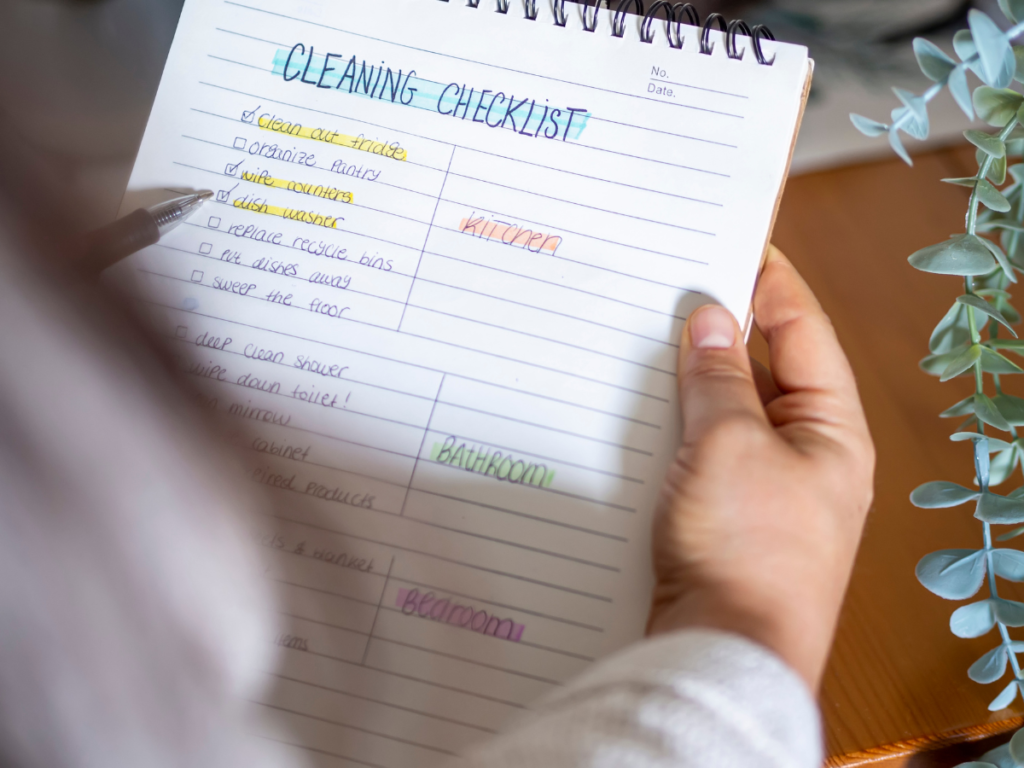 No.
Date.
CLEANING CHECKLIST
☑ Clean out fridge
☐ organize pantry
☑ wipe counters
☑ dish washer
☐ replace recycle bins
☐ Put dishes away
☐ sweep the floor
KITCHEN
☐ deep clean shower
wipe down toilet!
mirrow
cabinet
Products
BATHROOM
& blanket
Bedroom